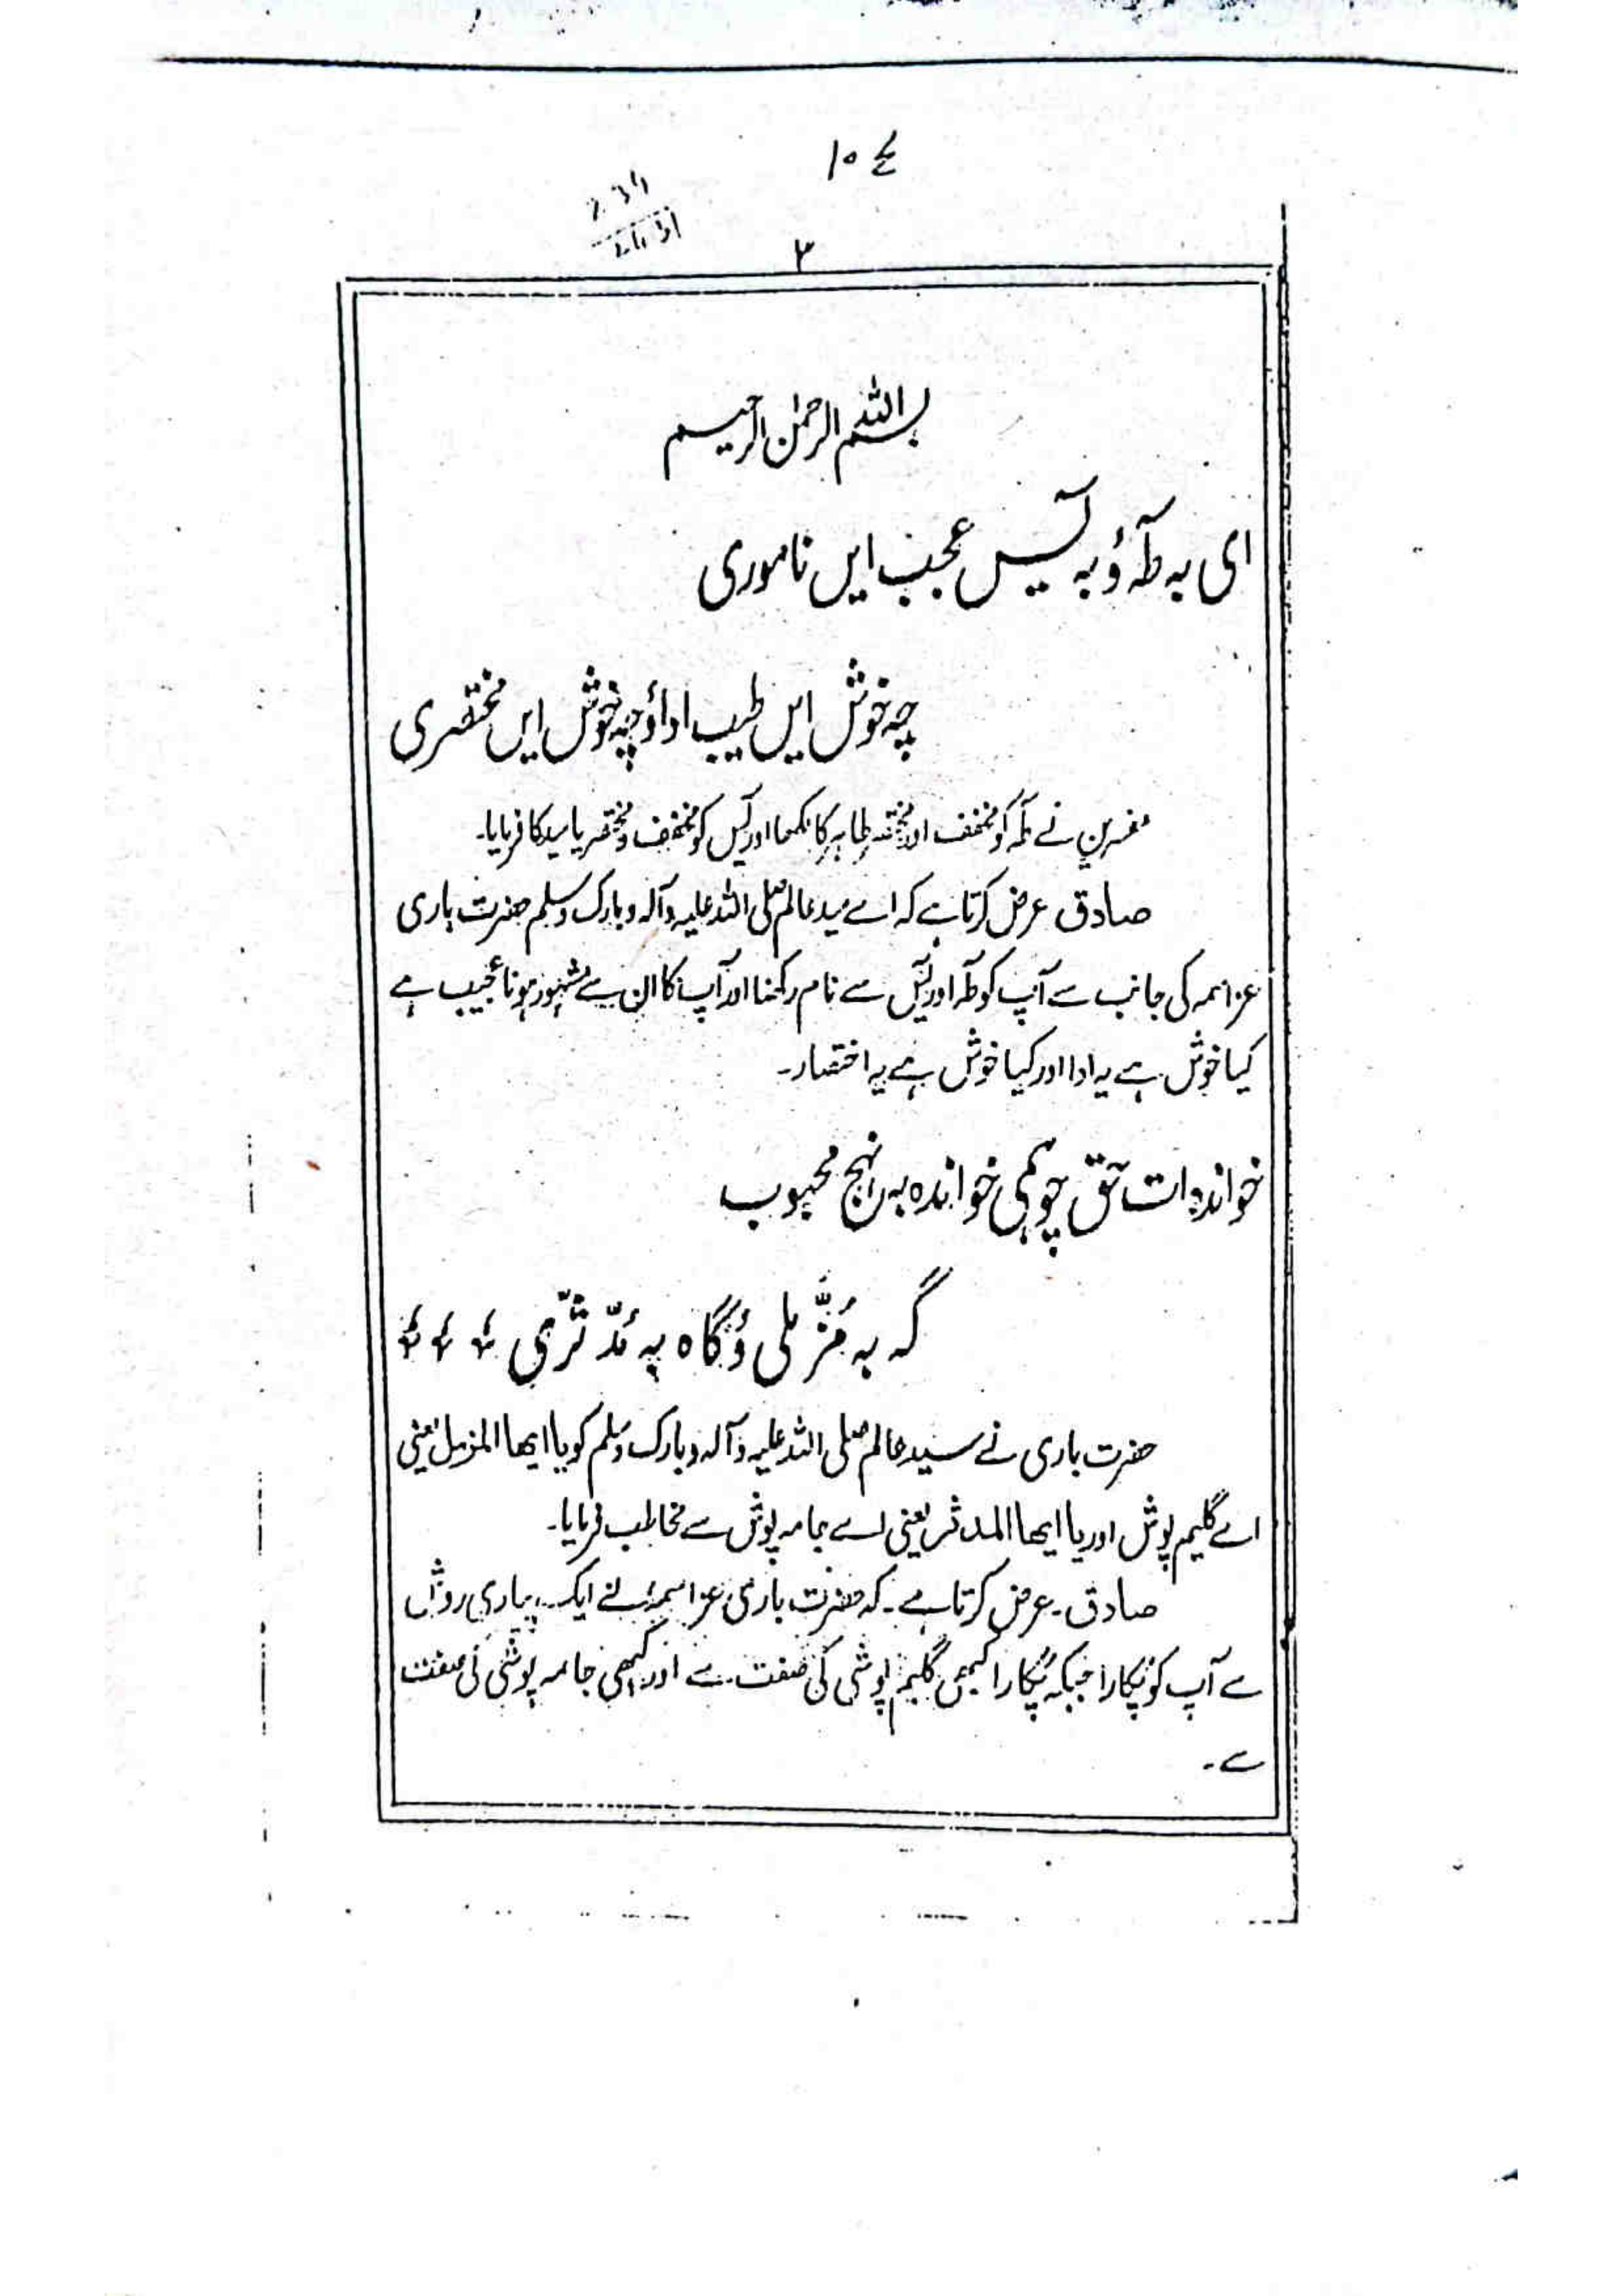 ۳
بسم اللہ الرحمٰن الرحیم
ای بہ طٰہٰ وُ بہ یٰسٓ عجب ایں ناموری
چہ خوش ایں طیب ادا وُ چہ خوش ایں مختصری
مفسرین نے طٰہٰ کو مخفف اور مختصر طاہر کا لکھا اور یٰسٓ کو مخفف و مختصر یا سید کا فرمایا۔
صادق عرض کرتا ہے کہ اے سید عالم صلی اللہ علیہ وآلہ وبارک وسلم حضرت باری
عزاسمہ کی جانب سے آپ کو طٰہٰ اور یٰسٓ سے نام رکھنا اور آپ کا ان سے مشہور ہونا عجیب ہے
کیا خوش ہے یہ ادا اور کیا خوش ہے یہ اختصار۔
خواندہ ات حق چو ہمی خواندہ بہ نہج محبوب
گہ بہ مُزَّملی وُ گاہ بہ مُدّثرّی
حضرت باری نے سید عالم صلی اللہ علیہ وآلہ وبارک وسلم کو یا ایھا المزمل یعنی
اے گلیم پوش اور یا ایھا المدثر یعنی اے جامہ پوش سے مخاطب فرمایا۔
صادق۔ عرض کرتا ہے۔ کہ حضرت باری عزاسمہٗ نے ایک پیاری روش
سے آپ کو پکارا جبکہ پُکارا کبھی گلیم پوشی کی صفت سے اور کبھی جامہ پوشی کی صفت
سے۔